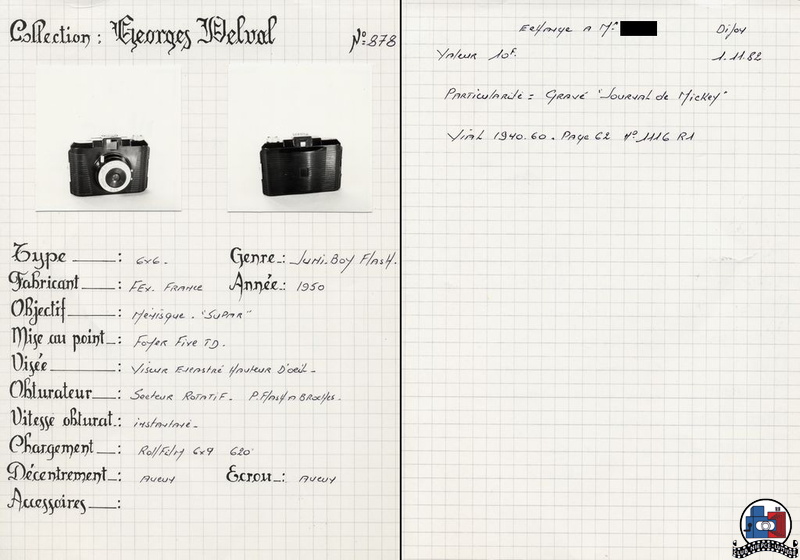 Collection : Georges Delval
No: 878
Type : 6x6.
Genre : Juni-Boy Flash.
Fabricant : Fex. France
Année : 1950
Objectif : Ménisque. "SUPAR"
Mise au point : Foyer Fixe TD.
Visée : Viseur Encastré Hauteur D'oeil.
Obturateur : Secteur Rotatif. P. Flash a Broches.
Vitesse obturat. : instantané.
Chargement : RollFilm 6x9 620
Décentrement : Aucun
Ecrou : Aucun
Accessoires :
Echange a Mr Dijon
Valeur 10F. 1.11.82
Particularité = Gravé "Journal de Mickey"
Vial 1940.60. Page 62 No 1116 R1